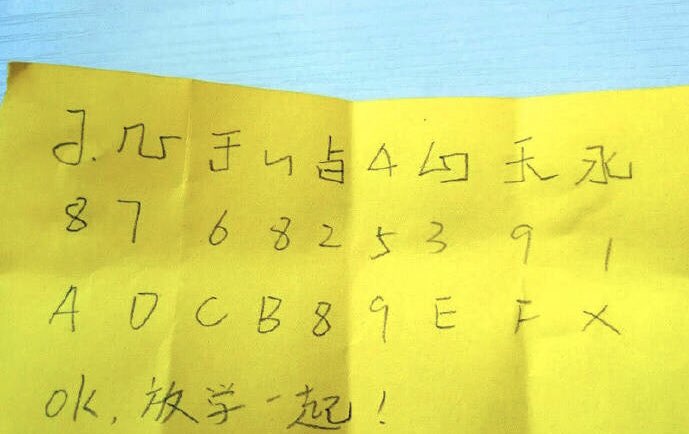 于 占 4 天 永
8 7 6 8 2 5 3 9 1
A D C B 8 9 E F X
OK, 放学一起!